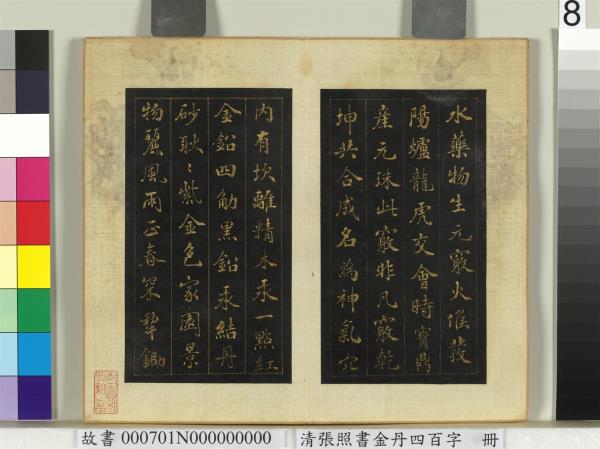 水藥物生元竅火候發
陽爐龍虎交會時寶鼎
產元珠此竅非凡竅乾
坤共合成名為神氣穴
內有坎離精木汞一點紅
金鉛四觔黑鉛汞結丹
砂耿〻紫金色家園景
物麗風雨正春深犁鋤
8
故書 000701N000000000 清張照書金丹四百字 冊